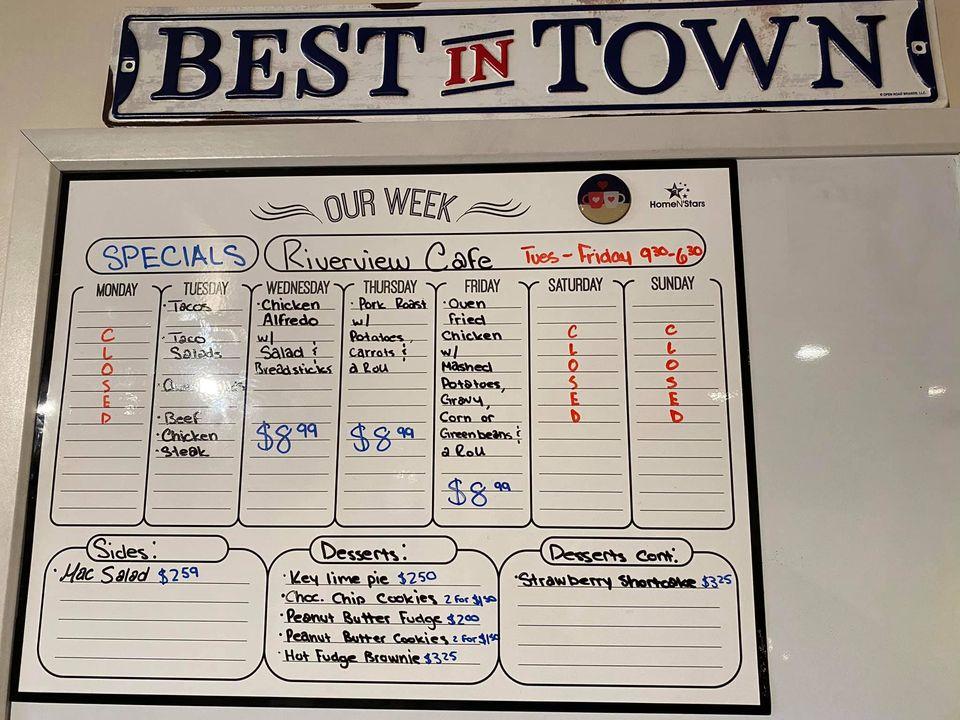 BEST IN TOWN
© OPEN ROAD BRANDS, LLC.
OUR WEEK
HomeN'Stars
SPECIALS
Riverview Cafe Tues - Friday 9³⁰-6³⁰
MONDAY
C
L
O
S
E
D
TUESDAY
· Tacos
· Taco
Salads
· Beef
· Chicken
· Steak
WEDNESDAY
· Chicken
Alfredo
w/
Salad &
Breadsticks
$8⁹⁹
THURSDAY
· Pork Roast
w/
Potatoes,
Carrots &
a Roll
$8⁹⁹
FRIDAY
· Oven
Fried
Chicken
w/
Mashed
Potatoes,
Gravy,
Corn or
Greenbeans &
a Roll
$8⁹⁹
SATURDAY
C
L
O
S
E
D
SUNDAY
C
L
O
S
E
D
Sides:
· Mac Salad $2⁵⁹
Desserts:
· Key lime pie $2⁵⁰
· Choc. Chip Cookies 2 for $1⁵⁰
· Peanut Butter Fudge $2⁰⁰
· Peanut Butter Cookies 2 for $1⁵⁰
· Hot Fudge Brownie $3²⁵
Desserts Cont:
· Strawberry Shortcake $3²⁵